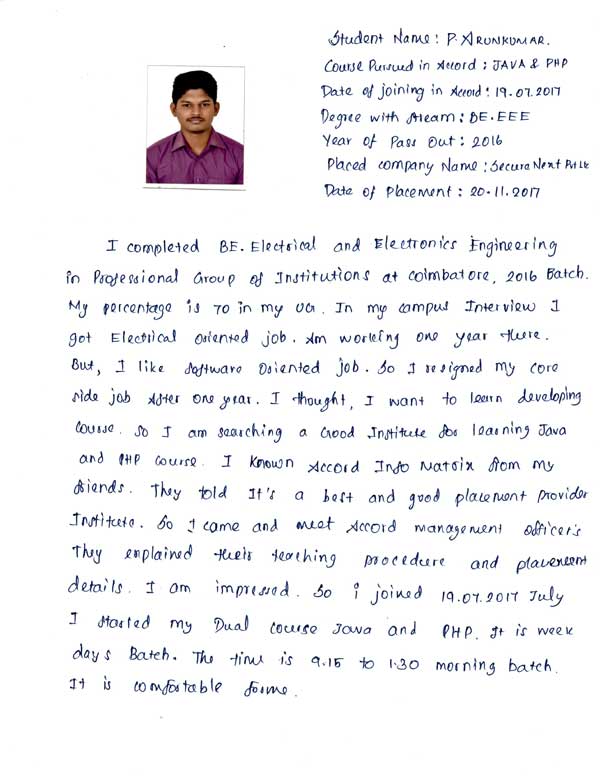 Student Name : P. ARUNKUMAR.
Course Pursued in Accord : JAVA & PHP
Date of joining in Accord : 19.07.2017
Degree with Stream : BE.EEE
Year of Pass Out : 2016
Placed company Name : Secura Next Pvt Lt
Date of Placement : 20-11-2017
I completed BE. Electrical and Electronics Engineering
in Professional Group of Institutions at Coimbatore, 2016 Batch.
My percentage is 70 in my UG. In my campus Interview I
got Electrical Oriented job. Am working one year there.
But, I like software Oriented job. So I resigned my core
side job After one year. I thought, I want to learn developing
course. So I am searching a Good Institute for learning Java
and PHP course. I known Accord Info Matrix from my
friends. They told It's a best and good placement provider
Institute. So I came and meet Accord management officer's
They explained their teaching procedure and placement
details. I am impressed. So i joined 19.07.2017 July
I started my Dual course Java and PHP. It is week
days Batch. The time is 9.15 to 1.30 morning batch.
It is comfortable forme.